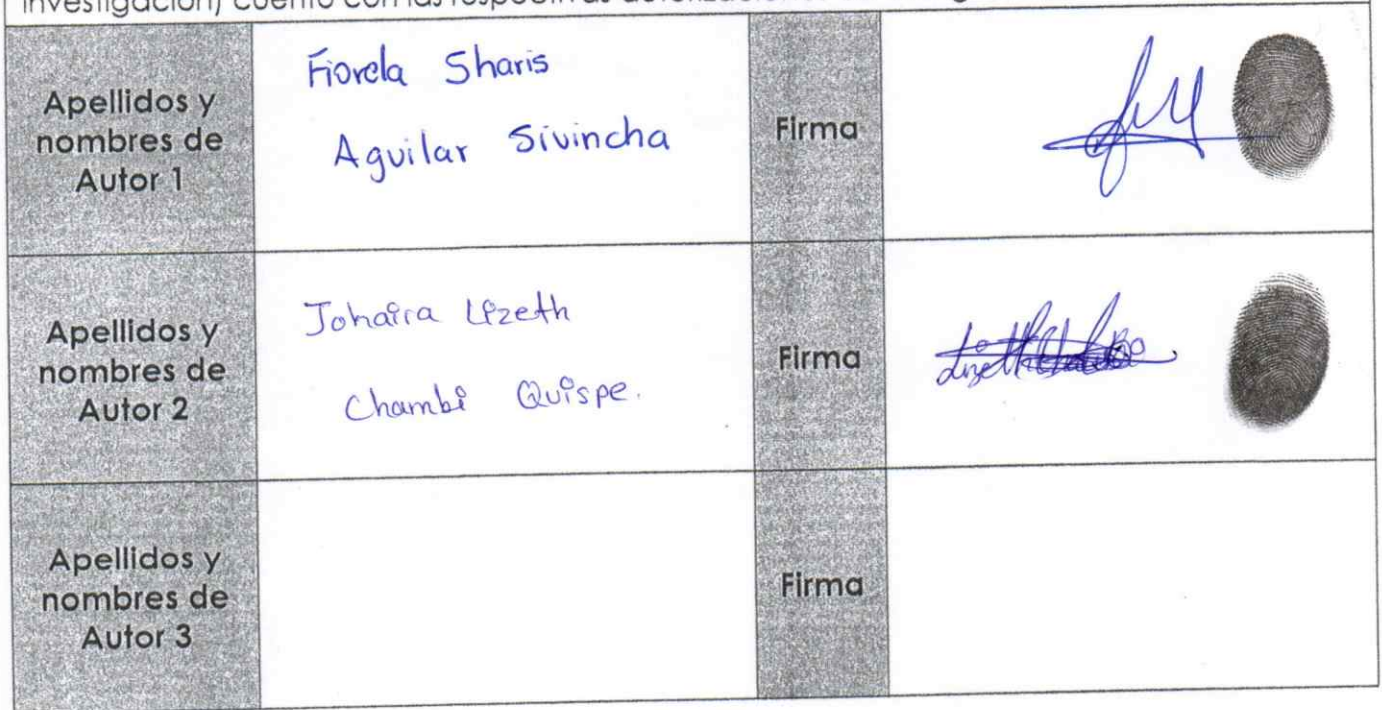 investigación) cuento con las respectivas
Apellidos y
nombres de
Autor 1
Fiorela Sharis
Aguilar Sivincha
Firma
Apellidos y
nombres de
Autor 2
Johaira Lizeth
Chambi Quispe.
Firma
Apellidos y
nombres de
Autor 3
Firma